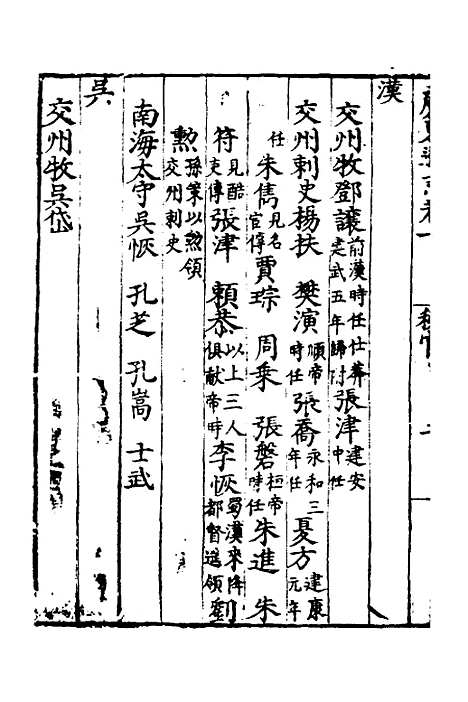 漢
交州牧鄧讓前漢時任仕莽建武五年歸附張津建安中任
交州刺史楊扶 樊演順帝時任張喬永和三年任夏方建康元年
任朱儁見名宦傳賈琮 周乘 張磐桓帝時任朱進 朱
符見酷吏傳張津 賴恭以上三人俱献帝時李恢蜀漢來降都督遥領劉
勲孫策以勲領交州刺史
南海太守吳恢 孔芝 孔嵩 士武
吳
交州牧吳岱